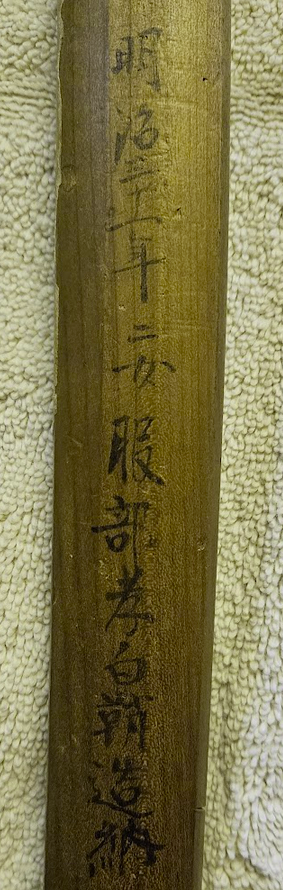 明治三十一年二月服部孝白鞘造納